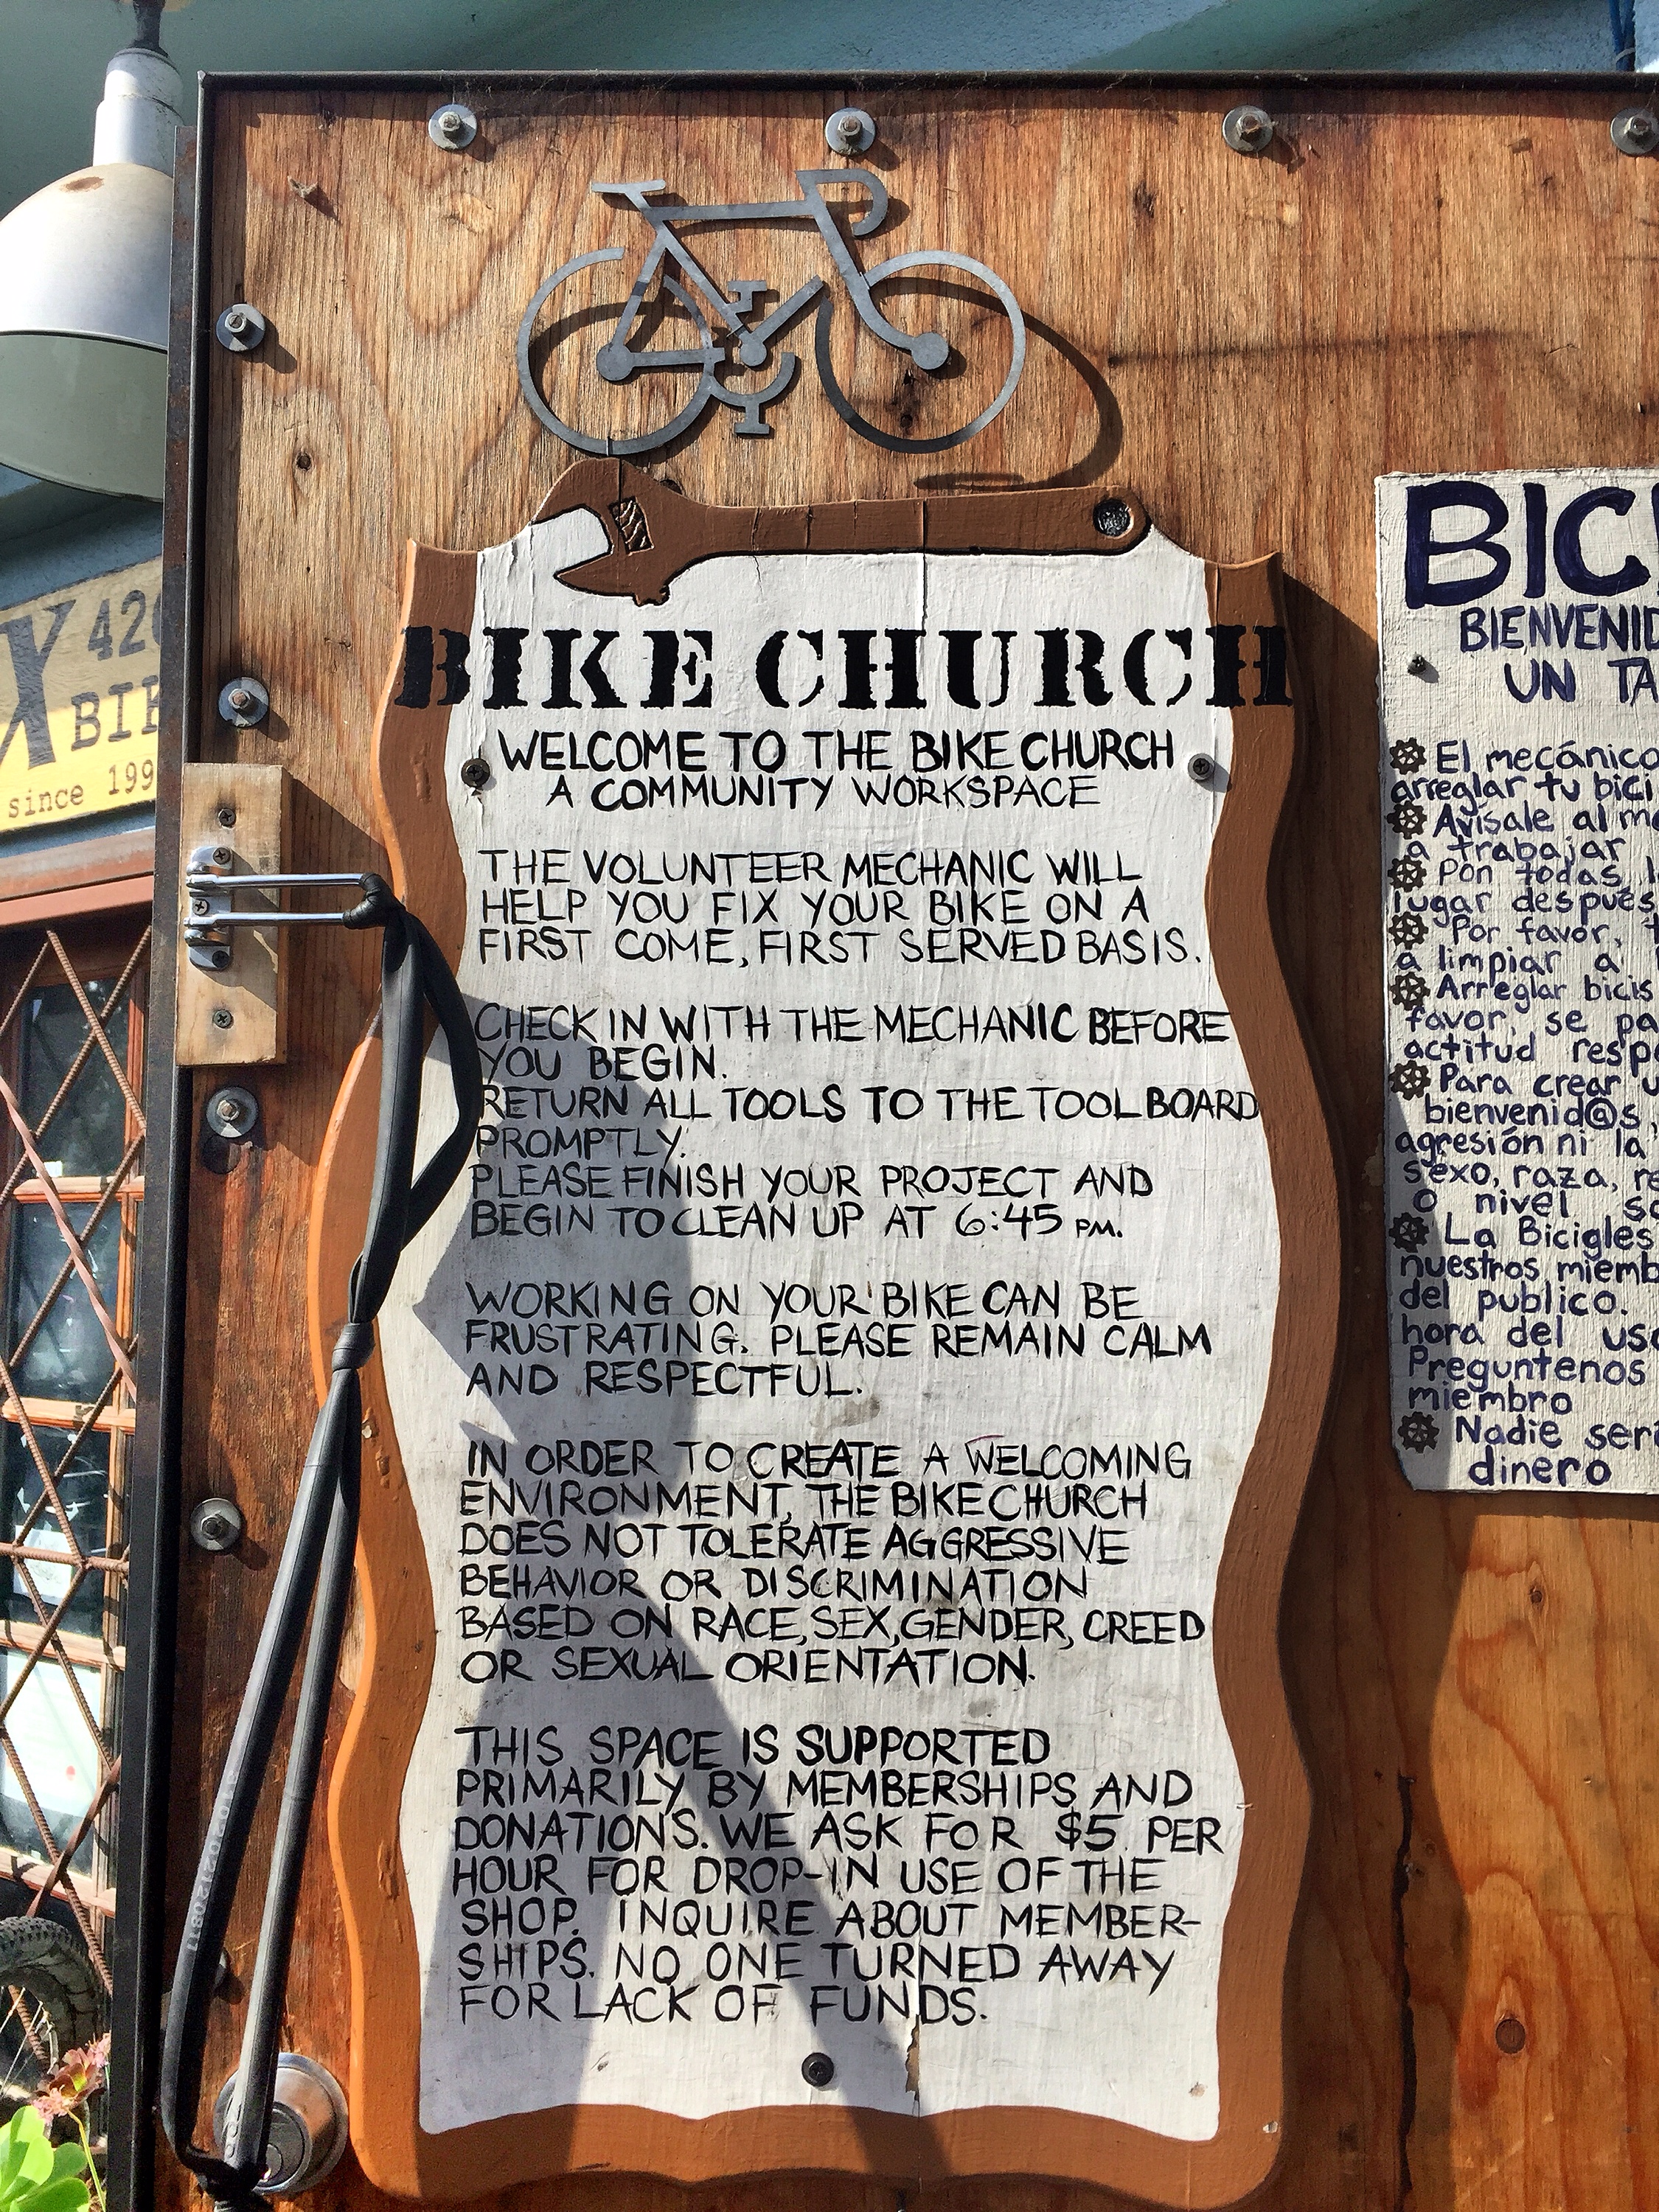 BIKE CHURCH
WELCOME TO THE BIKE CHURCH
A COMMUNITY WORKSPACE
THE VOLUNTEER MECHANIC WILL
HELP YOU FIX YOUR BIKE ON A
FIRST COME, FIRST SERVED BASIS.
CHECK IN WITH THE MECHANIC BEFORE
YOU BEGIN.
RETURN ALL TOOLS TO THE TOOL BOARD
PROMPTLY.
PLEASE FINISH YOUR PROJECT AND
BEGIN TO CLEAN UP AT 6:45 PM.
WORKING ON YOUR BIKE CAN BE
FRUSTRATING. PLEASE REMAIN CALM
AND RESPECTFUL.
IN ORDER TO CREATE A WELCOMING
ENVIRONMENT, THE BIKE CHURCH
DOES NOT TOLERATE AGGRESSIVE
BEHAVIOR OR DISCRIMINATION
BASED ON RACE, SEX, GENDER, CREED
OR SEXUAL ORIENTATION.
THIS SPACE IS SUPPORTED
PRIMARILY BY MEMBERSHIPS AND
DONATIONS. WE ASK FOR $5 PER
HOUR FOR DROP-IN USE OF THE
SHOP. INQUIRE ABOUT MEMBER-
SHIPS. NO ONE TURNED AWAY
FOR LACK OF FUNDS.
X 42
BI
since 199
BIC
BIENVENID
UN TA
El mecánico
arreglar tu bici
Avísale al me
a trabajar
Pon todas l
lugar después
Por favor, t
a limpiar a
Arreglar bicis
favor, se pa
actitud resp
Para crear u
bienvenid@s,
agresión ni la
sexo, raza, re
o nivel so
La Bicigles
nuestros miemb
del publico.
hora del uso
Preguntenos
miembro
Nadie ser
dinero